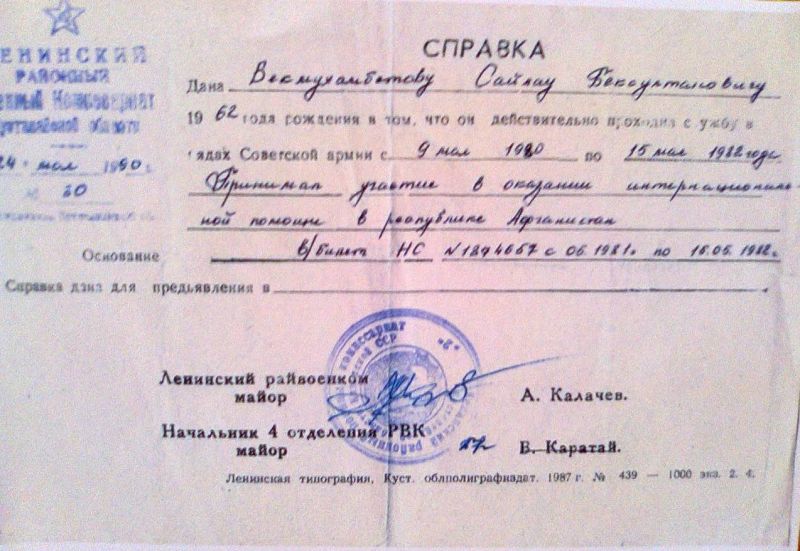 ЛЕНИНСКИЙ
РАЙОННЫЙ
Военный Комиссариат
области
24 мая 1990 г.
№ 30
СПРАВКА
Дана Бекмухамбетову Сайлау Бексултановичу
1962 года рождения в том, что он действительно проходил службу в
рядах Советской армии с 9 мая 1980 по 15 мая 1982 года
Принимал участие в оказании интернациональ-
ной помощи в республике Афганистан
Основание в/билета НС № 1894657 с 06.1981г. по 15.05.1982г.
Справка дана для предьявления в
комиссариат
ССР
"6"
Ленинский райвоенком
майор
А. Калачев.
Начальник 4 отделения РВК
майор
В. Каратай.
Ленинская типография, Куст. облполиграфиздат. 1987 г. № 439 — 1000 экз. 2. 4.